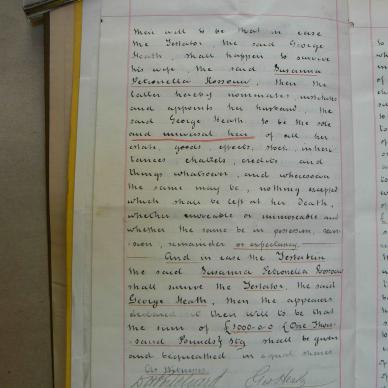 their will to be that in case
the Testator, the said George
Heath, shall happen to survive
his wife, the said Susanna
Petronella Rossouw, then the
latter hereby nominates, institutes
and appoints her husband, the
said George Heath, to be the sole
and universal heir of all her
estate, goods, effects, stock, inheri-
tances, chattels, credits and
things whatsoever, and wheresoever
the same may be, nothing excepted
which shall be left at her Death,
whether moveable or immoveable and
whether the same be in possession, rever-
sion, remainder or expectancy.
And in case the Testatrix
the said Susanna Petronella Rossouw
shall survive the Testator, the said
George Heath, then the appearers
declared it their will to be that
the sum of £1000-0-0 {One Thou-
sand Pounds} Stg shall be given
and bequeathed in equal shares
As Witnesses
Geo Heath